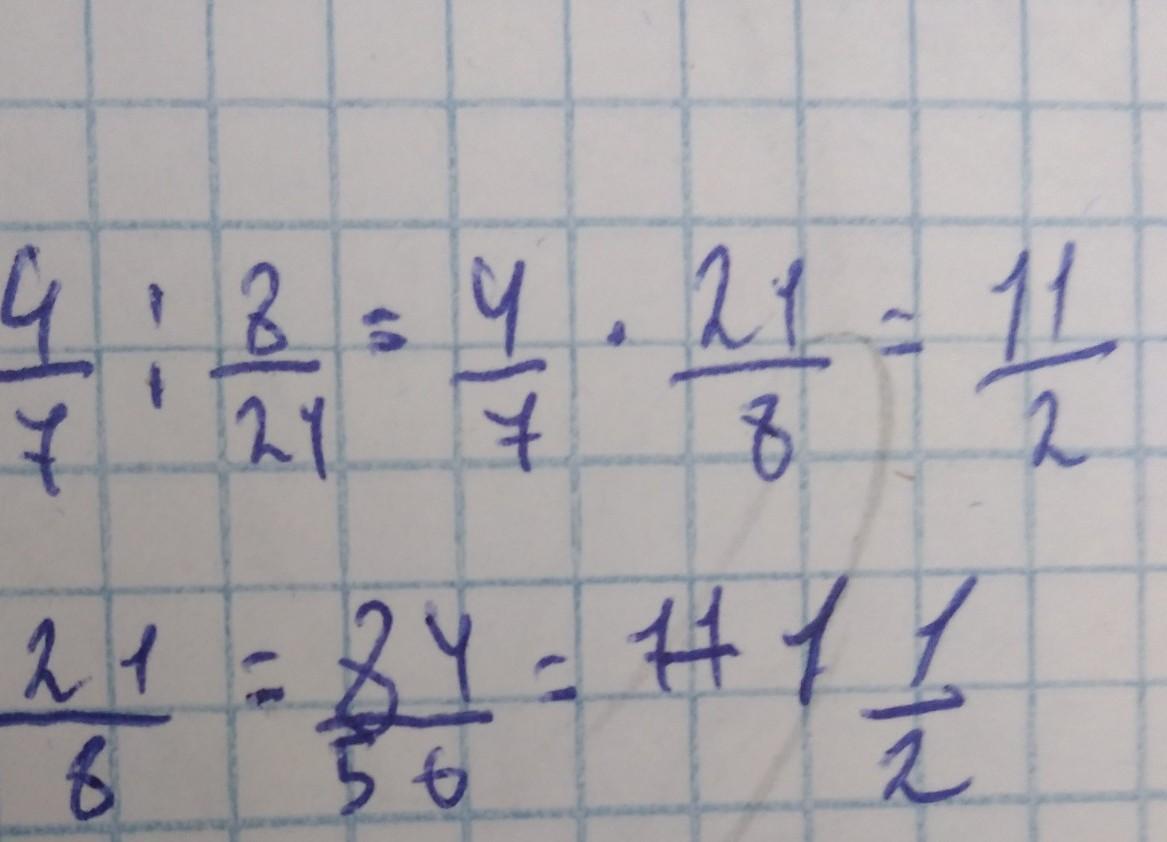 4/7 : 8/21 = 4/7 · 21/8 = 11/2
21/8 = 84/56 = 1 1/2